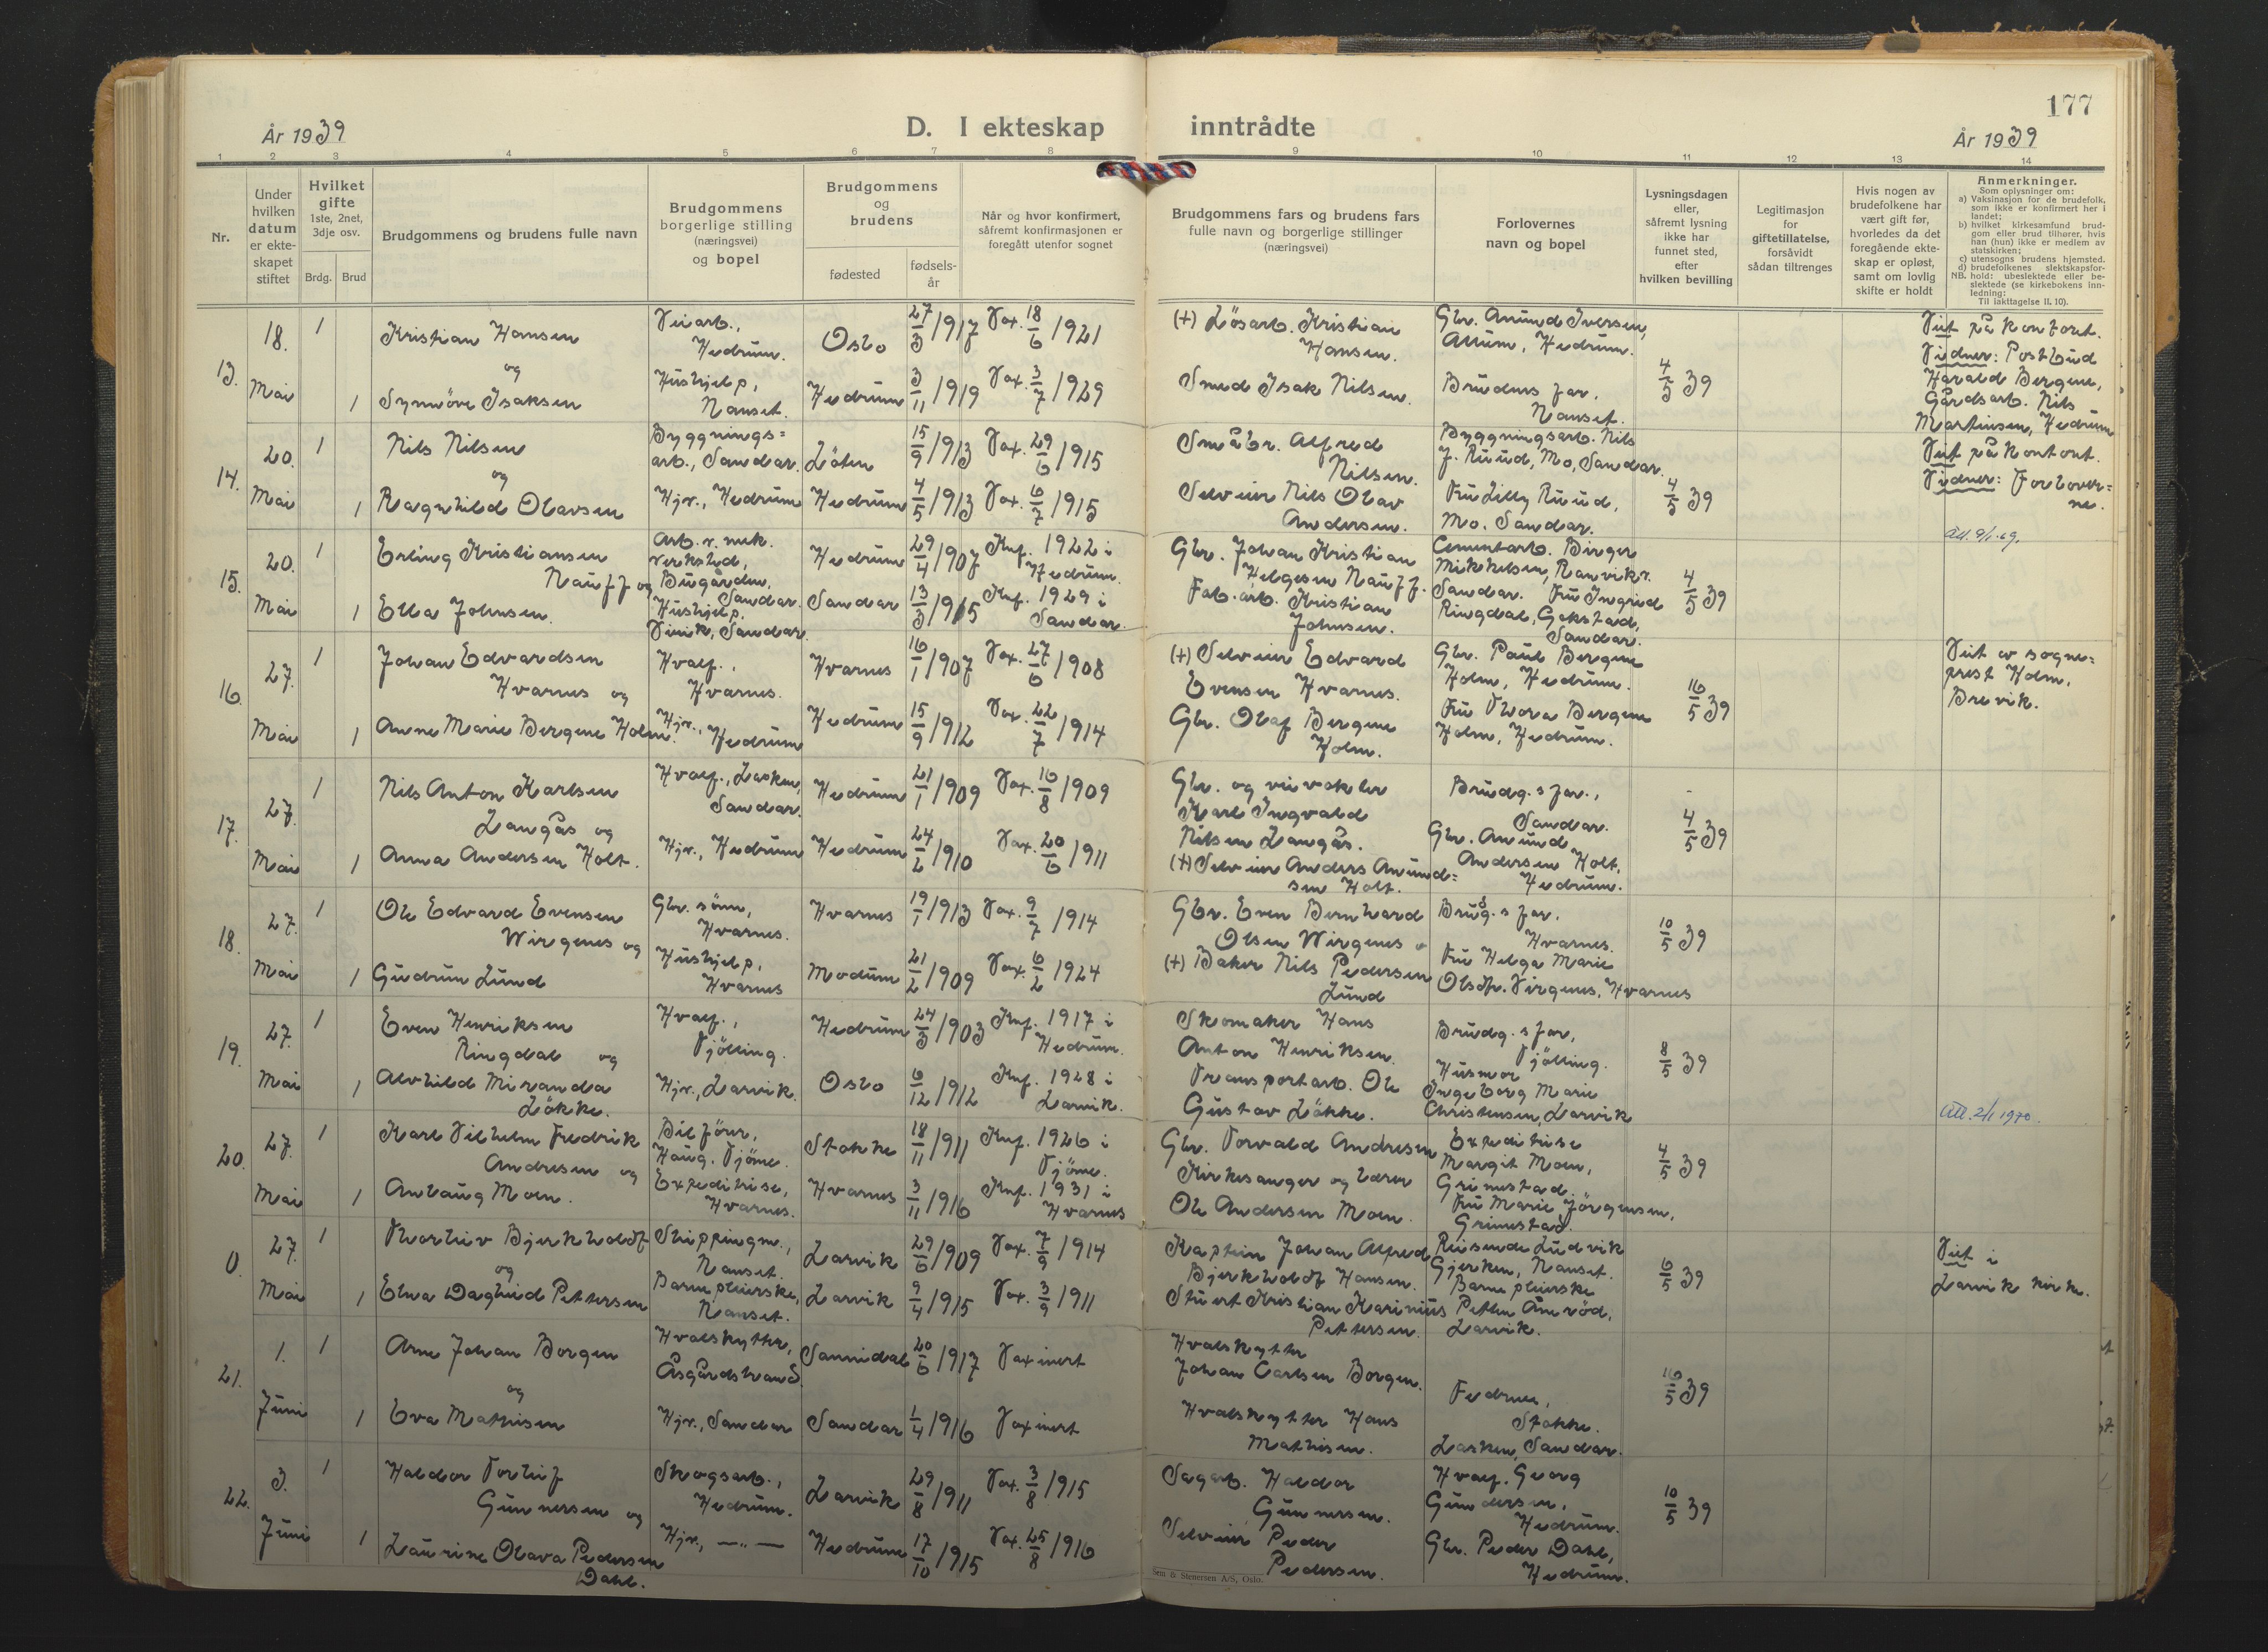 177
År 1939
D. I ekteskap inntrådte
År 1939
1 2 3 4 5 6 7 8 9 10 11 12 13 14
Nr.
Under
hvilken
datum
er ekte-
skapet
stiftet
Hvilket
gifte
1ste, 2net,
3dje osv.
Brdg. Brud
Brudgommens og brudens fulle navn
Brudgommens
borgerlige stilling
(næringsvei)
og bopel
Brudgommens
og
brudens
fødested
fødsels-
år
Når og hvor konfirmert,
såfremt konfirmasjonen er
foregått utenfor sognet
Brudgommens fars og brudens fars
fulle navn og borgerlige stillinger
(næringsvei)
Forlovernes
navn og bopel
Lysningsdagen
eller,
såfremt lysning
ikke har
funnet sted,
efter
hvilken bevilling
Legitimasjon
for
giftetillatelse,
forsåvidt
sådan tiltrenges
Hvis nogen av
brudefolkene har
vært gift før,
hvorledes da det
foregående ekte-
skap er opløst,
samt om lovlig
skifte er holdt
Anmerkninger.
Som oplysninger om:
a) Vaksinasjon for de brudefolk,
som ikke er konfirmert her i
landet;
b) hvilket kirkesamfund brud-
gom eller brud tilhører, hvis
han (hun) ikke er medlem av
statskirken;
c) utensogns brudens hjemsted.
d) brudefolkenes slektskapsfor-
NB. hold: ubeslektede eller be-
slektede (se kirkebokens inn-
ledning:
Til iakttagelse II. 10).
13.
18. Mai
1
Kristian Hansen
og
1
Synnöve Isaksen
Veiarb.,
Hedrum.
Hushjelp,
Nanset.
Oslo
Hedrum
27/3 1917
3/11 1919
Vax. 18/6 1921
Vax. 3/7 1929
(+) Lösarb. Kristian
Hansen.
Smed Isak Nilsen.
Gbr. Anund Iversen,
Allum, Hedrum.
Brudens far.
Nanset.
4/5 39
Viet på kontoret.
Vidner: Postbud
Harald Bergene,
Gårdsarb. Nils
Martinsen, Hedrum
14.
20. Mai
1
Nils Nilsen
og
1
Ragnhild Olavsen
Byggnings=
arb., Sandar.
Hjv., Hedrum
Löten
Hedrum
15/9 1913
4/5 1913
Vax. 29/6 1915
Vax. 6/7 1915
Småbr. Alfred
Nilsen.
Selveier Nils Olav
Andersen.
Byggningsarb. Nils
J. Ruud, Mo, Sandar.
Fru Lilly Ruud,
Mo. Sandar.
4/5 39
Viet på kontoret.
Vidner: Forlover=
ne.
15.
20. Mai
1
Erling Kristiansen
Nauff og
1
Ella Johnsen.
Arb. v. mek.
verksted,
Bugården,
Sandar.
Hushjelp,
Virik, Sandar.
Hedrum
Sandar
29/4 1907
13/3 1915
Knf. 1922 i
Hedrum.
Knf. 1929 i
Sandar.
Gbr. Johan Kristian
Helgesen Nauff.
Fab. arb. Kristian
Johnsen.
Cementarb. Birger
Mikkelsen, Ranvik v.
Sandar. Fru Ingrid
Ringdal, Gokstad,
Sandar.
4/5 39
16.
27. Mai
1
Johan Edvardsen
Hvarnes og
1
Anne Marie Bergene Holm.
Hvalf.,
Hvarnes.
Hjv., Hedrum
Hvarnes
Hedrum
16/1 1907
15/9 1912
Vax. 27/6 1908
Vax. 22/7 1914
(+) Selveier Edvard
Evensen Hvarnes.
Gbr. Olaf Bergene
Holm.
Gbr. Paul Bergene
Holm, Hedrum.
Fru Thora Bergene
Holm, Hedrum.
16/5 39
Viet av sogne=
prest Holm,
Brevik.
17.
27. Mai
1
Nils Anton Karlsen
Langås og
1
Anna Andersen Holt.
Hvalf., Lasken,
Sandar.
Hjv., Hedrum
Hedrum
Hedrum
21/1 1909
24/2 1910
Vax. 16/8 1909
Vax. 20/6 1911
Gbr. og veivokter
Karl Ingvald
Nilsen Langås.
(+) Selveier Anders Anund=
sen Holt.
Brudg.s far,
Sandar.
Gbr. Anund
Andersen Holt,
Hedrum.
4/5 39
18.
27. Mai
1
Ole Edvard Evensen
Wirgenes og
1
Gudrun Lund
Gbr. sönn,
Hvarnes.
Hushjelp,
Hvarnes
Hvarnes
Modum
19/1 1913
21/2 1909
Vax. 9/7 1914
Vax. 6/2 1924
Gbr. Even Bernhard
Olsen Wirgenes
(+) Baker Nils Pedersen
Lund
Brudg.s far.
Hvarnes.
Fru Helga Marie
Olsdtr. Virgenes, Hvarnes
10/5 39
19.
27. Mai
1
Even Henriksen
Ringdal og
1
Alvhild Miranda
Lökke.
Hvalf.,
Tjölling.
Hjv., Larvik.
Hedrum
Oslo
24/3 1903
6/12 1912
Knf. 1917 i
Hedrum.
Knf. 1928 i
Larvik.
Skomaker Hans
Anton Henriksen.
Transportarb. Ole
Gustav Lökke.
Brudg.s far,
Tjölling.
Husmor
Ingeborg Marie
Christensen, Larvik
8/5 39
20.
27. Mai
1
Karl Vilhelm Fredrik
Andresen og
1
Anlaug Moen.
Bilförer,
Haug. Tjöme.
Expeditrise,
Hvarnes.
Stokke
Hvarnes
18/11 1911
3/11 1916
Knf. 1926 i
Tjöme.
Knf. 1931 i
Hvarnes
Gbr. Torvald Andresen
Kirkesanger og lærer
Ole Andersen Moen.
Expeditrise
Margit Moen,
Grimestad.
Fru Marie Jörgensen,
Grimestad.
4/5 39
Att. 2/1 1970.
0.
27. Mai
1
Thorleiv Bjerkholdt
og
1
Elna Dagfrid Pettersen
Shippingm.,
Nanset.
Barnepleierske,
Nanset.
Larvik
Larvik
29/6 1909
9/4 1915
Vax. 7/9 1914
Vax. 3/9 1911
Kaptein Johan Alfred
Bjerkholdt Hansen.
Stuert Kristian Karinius
Pettersen.
Reisende Ludvik
Gjerken, Nanset.
Barnepleierske
Petten Åneröd,
Larvik.
6/5 39
Viet i
Larvik kirke.
21.
1. Juni
1
Arne Johan Borgen
og
1
Eva Mathisen
Hvalskytter,
Åsgårdstrand.
Hjv., Sandar
Sannidal
Sandar
20/6 1917
1/4 1916
Vaxinert
Vaxinert
Hvalskytter
Johan Carlsen Borgen.
Hvalskytter Hans
Mathisen.
Fedrene,
Stokke.
Lasken, Sandar.
16/5 39
22.
3. Juni
1
Haldor Torleif
Gunnersen og
1
Laurine Olava Pedersen
Dahl.
Skogsarb.,
Hedrum.
Hjv., —"—
Larvik
Hedrum
29/8 1911
17/10 1915
Vax. 3/8 1915
Vax. 25/8 1916
Sagarb. Haldor
Gunnersen.
Selveier Peder
Pedersen.
Hvalf. Georg
Gundersen,
Hedrum.
Gbr. Peder Dahl,
Hedrum.
10/5 39
Sem & Stenersen A/S, Oslo.